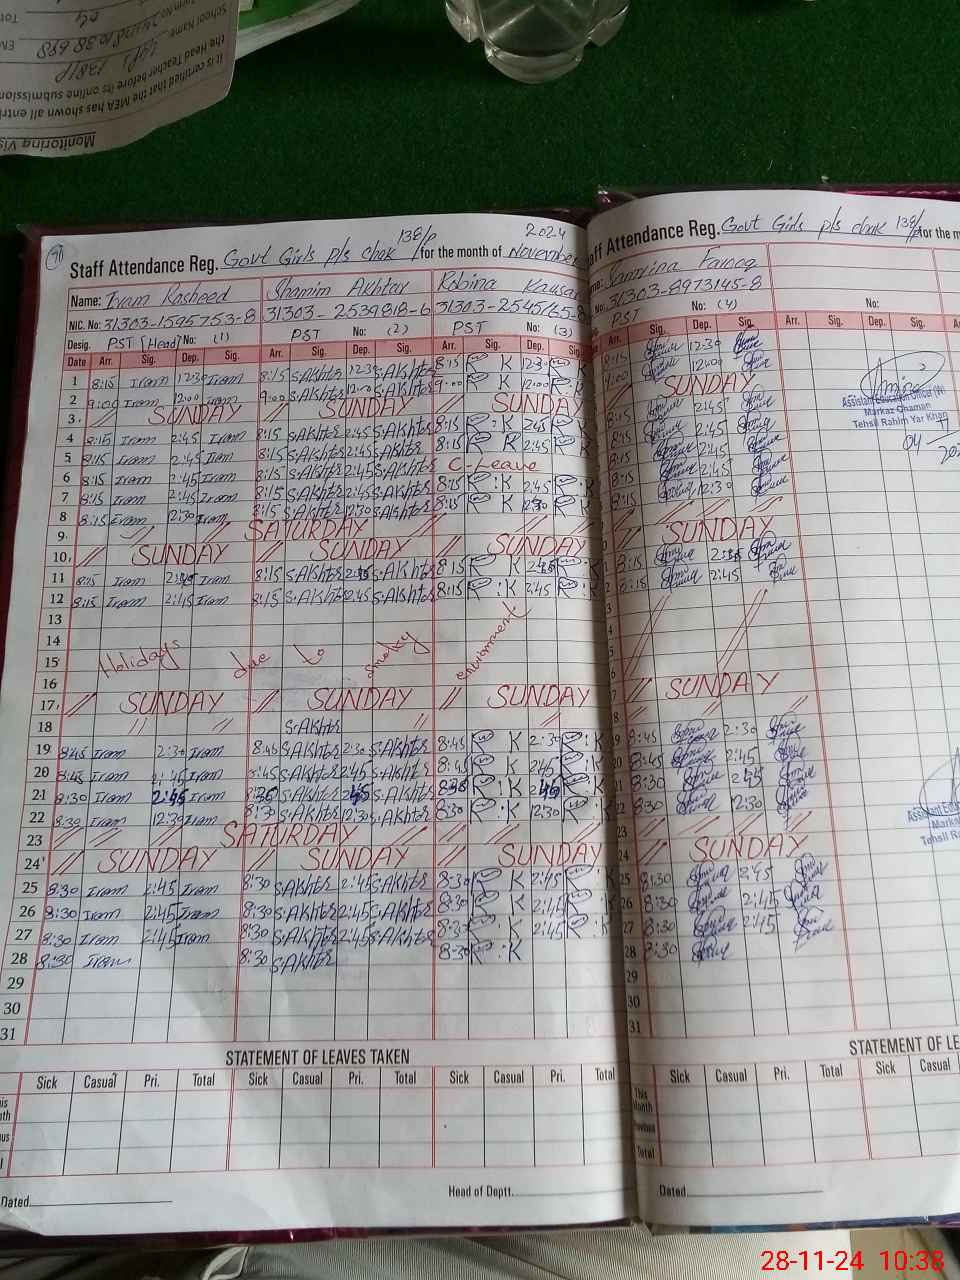 Monitoring Vis
it is certified that the MEA has shown all entri
the Head Teacher before its online submission
School Name
90
Staff Attendance Reg. Govt Girls p/s chak 138/p for the month of November 2024
Name: Iram Rasheed Shamim Akhtar Robina Kausar
NIC. No: 31303-1595753-8 31303-2539818-6 31303-2545165-8
Desig. PST [Head] No: (1) PST No: (2) PST No: (3)
Date Arr. Sig. Dep. Sig. Arr. Sig. Dep. Sig. Arr. Sig. Dep. Sig.
1 8:15 Iram 12:30 Iram 8:15 S.Akhter 12:30 S.Akhter 8:15 R K 12:30 R K
2 9:00 Iram 12:00 Iram 9:00 S.Akhter 12:00 S.Akhter 9:00 R K 12:00 R K
3 // SUNDAY // SUNDAY // SUNDAY
4 8:15 Iram 2:45 Iram 8:15 S.Akhter 2:45 S.Akhter 8:15 R:K 2:45 R:K
5 8:15 Iram 2:45 Iram 8:15 S.Akhter 2:45 S.Akhter 8:15 R:K 2:45 R:K
6 8:15 Iram 2:45 Iram 8:15 S.Akhter 2:45 S.Akhter C-Leave
7 8:15 Iram 2:45 Iram 8:15 S.Akhter 2:45 S.Akhter 8:15 R:K 2:45 R:K
8 8:15 Iram 12:30 Iram 8:15 S.Akhter 12:30 S.Akhter 8:15 R:K 12:30 R:K
9 // SATURDAY //
10 // SUNDAY // SUNDAY // SUNDAY
11 8:15 Iram 2:45 Iram 8:15 S.Akhter 2:45 S.Akhter 8:15 R K 2:45 R:K
12 8:15 Iram 2:45 Iram 8:15 S.Akhter 2:45 S.Akhter 8:15 R:K 2:45 R:K
13
14
15 Holidays due to smoky envirnment
16
17 // SUNDAY // SUNDAY // SUNDAY
18 // // S.Akhter // //
19 8:45 Iram 2:30 Iram 8:45 S.Akhter 2:30 S.Akhter 8:45 R K 2:30 R:K
20 8:45 Iram 2:45 Iram 8:45 S.Akhter 2:45 S.Akhter 8:45 R K 2:45 R:K
21 8:30 Iram 2:45 Iram 8:30 S.Akhter 2:45 S.Akhter 8:30 R K 2:45 R:K
22 8:30 Iram 12:30 Iram 8:30 S.Akhter 12:30 S.Akhter 8:30 R K 12:30 R:K
23 // SATURDAY //
24 // SUNDAY // SUNDAY // SUNDAY
25 8:30 Iram 2:45 Iram 8:30 S.Akhter 2:45 S.Akhter 8:30 R K 2:45 R:K
26 8:30 Iram 2:45 Iram 8:30 S.Akhter 2:45 S.Akhter 8:30 R K 2:45 R:K
27 8:30 Iram 2:45 Iram 8:30 S.Akhter 2:45 S.Akhter 8:30 R:K 2:45 R:K
28 8:30 Iram 8:30 S.Akhter 8:30 R:K
29
30
31
STATEMENT OF LEAVES TAKEN
Sick Casual Pri. Total Sick Casual Pri. Total Sick Casual Pri. Total
Dated
Head of Deptt.
aff Attendance Reg. Govt Girls p/s chak 138/p for the m
Farooq
No: 31303-8973145-8
PST No: (4) No:
Sig. Dep. Sig. Arr. Sig. Dep. Sig.
8:15 12:30
9:00 12:00
SUNDAY
8:15 2:45
8:15 2:45
8:15 2:45
8:15 2:45
8:15 12:30
// SUNDAY
8:15 2:45
8:15 2:45
// SUNDAY
8:45 2:30
8:45 2:45
8:30 2:45
8:30 12:30
23
24 // SUNDAY
25 8:30 2:45
26 8:30 2:45
27 8:30 2:45
28 8:30
29
30
31
Assistant Education Officer (W)
Markaz Chaman
Tehsil Rahim Yar Khan
04
Assistant Edu
Marka
Tehsil Rah
STATEMENT OF LE
Sick Casual Pri. Total Sick Casual
This Month
Previous
Total
Dated
28-11-24 10:38